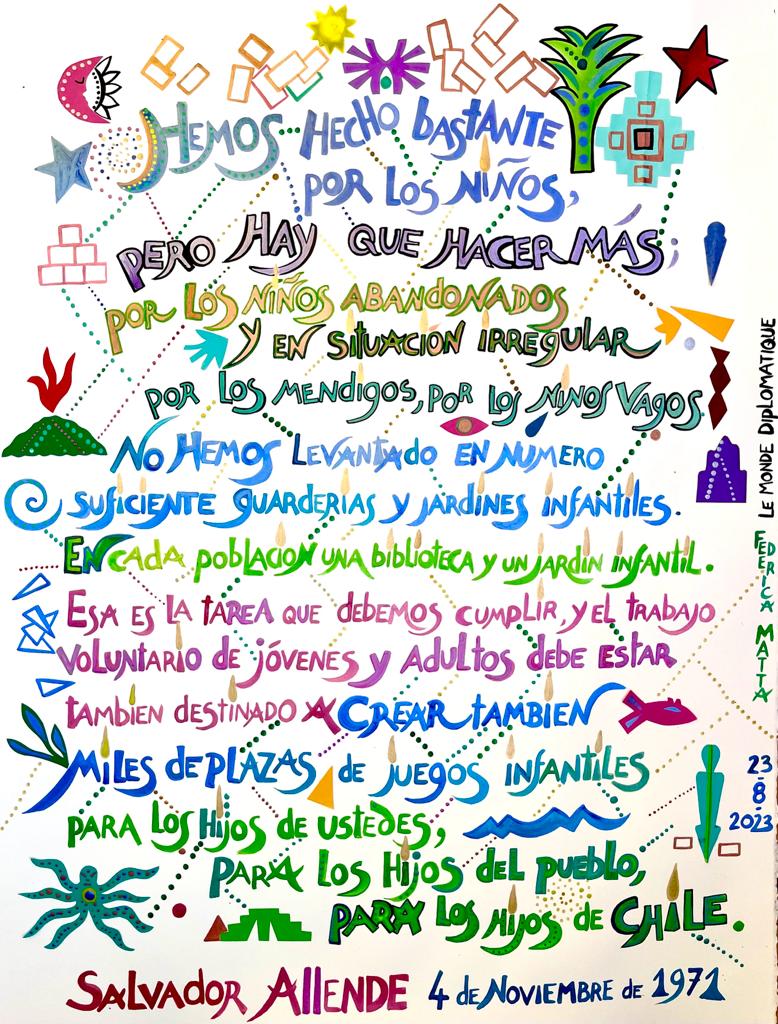 HEMOS HECHO bASTANTE
POR LOS NIÑOS,
PERO HAY QUE HACER MÁS;
POR LOS NIÑOS ABANDONADOS
Y EN SITUACION IRREGULAR
POR LOS MENDIGOS, POR LOS NINOS VAGOS
NO HEMOS LEVANTADO EN NUMERO
SUFICIENTE GUARDERIAS Y JARDINES INFANTILES.
EN CADA POBLACION UNA BIBLIOTECA Y UN JARDIN INFANTIL.
ESA ES LA TAREA QUE DEBEMOS CUMPLIR, Y EL TRABAJO
VOLUNTARIO DE JÓVENES Y ADULTOS DEBE ESTAR
TAMBIEN DESTINADO A CREAR TAMBIEN
MILES DE PLAZAS DE JUEGOS INFANTILES
PARA LOS HIJOS DE USTEDES,
PARA LOS HIJOS DEL PUEBLO,
PARA LOS HIJOS DE CHILE.
SALVADOR ALLENDE 4 DE NOVIEMBRE DE 1971
LE MONDE DIPLOMATIQUE
FEDERICA MATTA
23
-8-
2023